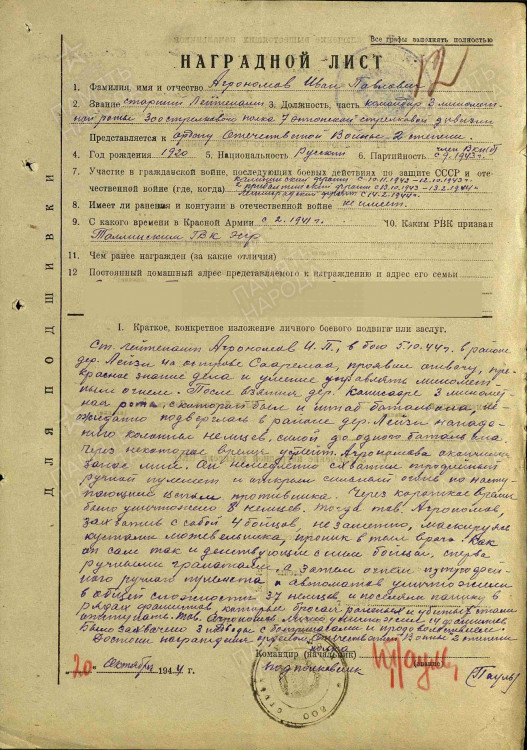 Все графы заполнять полностью
12
НАГРАДНОЙ ЛИСТ
1. Фамилия, имя и отчество Агрономов Иван Павлович
2. Звание старший лейтенант 3. Должность, часть командир 3 минометной роты 300 стрелкового полка 7 эстонской стрелковой дивизии
Представляется к ордену Отечественной Войны 2 степени
4. Год рождения 1920 5. Национальность Русский 6. Партийность член ВКП(б) с 1943 г.
7. Участие в гражданской войне, последующих боевых действиях по защите СССР и отечественной войне (где, когда)
8. Имеет ли ранения и контузии в отечественной войне не имеет
9. С какого времени в Красной Армии с 2.1941 г. 10. Каким РВК призван
Таллинским ГВК ЭССР
11. Чем ранее награжден (за какие отличия)
12 Постоянный домашный адрес представляемого к награждению и адрес его семьи
ДЛЯ ПОДШИВКИ
I. Краткое, конкретное изложение личного боевого подвига или заслуг.
Ст. лейтенант Агрономов И.П., в бою 5.10.44 г. в районе
дер. Лейзи на острове Сааремаа, проявил отвагу, прекрасное
знание дела и умение управлять минометным
огнем. После взятия дер. 3 минометная
рота, с которой был и штаб батальона,
неожиданно подверглась в районе дер. Лейзи нападению
колонны немцев, силой до одного батальона.
Через некоторое время у лейт. Агрономова
мин. Он немедленно схватил трофейный
ручной пулемет и открыл сильный огонь по наступающим
цепям противника. Через короткое время
было уничтожено 8 немцев. Тогда тов. Агрономов,
захватив с собой 4 бойцов, незаметно, маскируясь
кустами можевельника, проник в тыл врага. Как
он сам так и действующие с ним бойцы, сперва
ручными гранатами, а затем огнем
ручного пулемета и автоматов уничтожили
в общей сложности 37 немцев, и посеяли панику в
рядах фашистов, которые бросая раненых и убитых стали
отступать. Тов. Агрономов лично уничтожил 14 фашистов.
Было захвачено 3 с боеприпасами и продовольствием.
Достоин награждения орденом Отечественной Войны 2 степени
Командир (начальник) полка
подполковник
(звание)
(Пауль)
20 октября 1944 г.